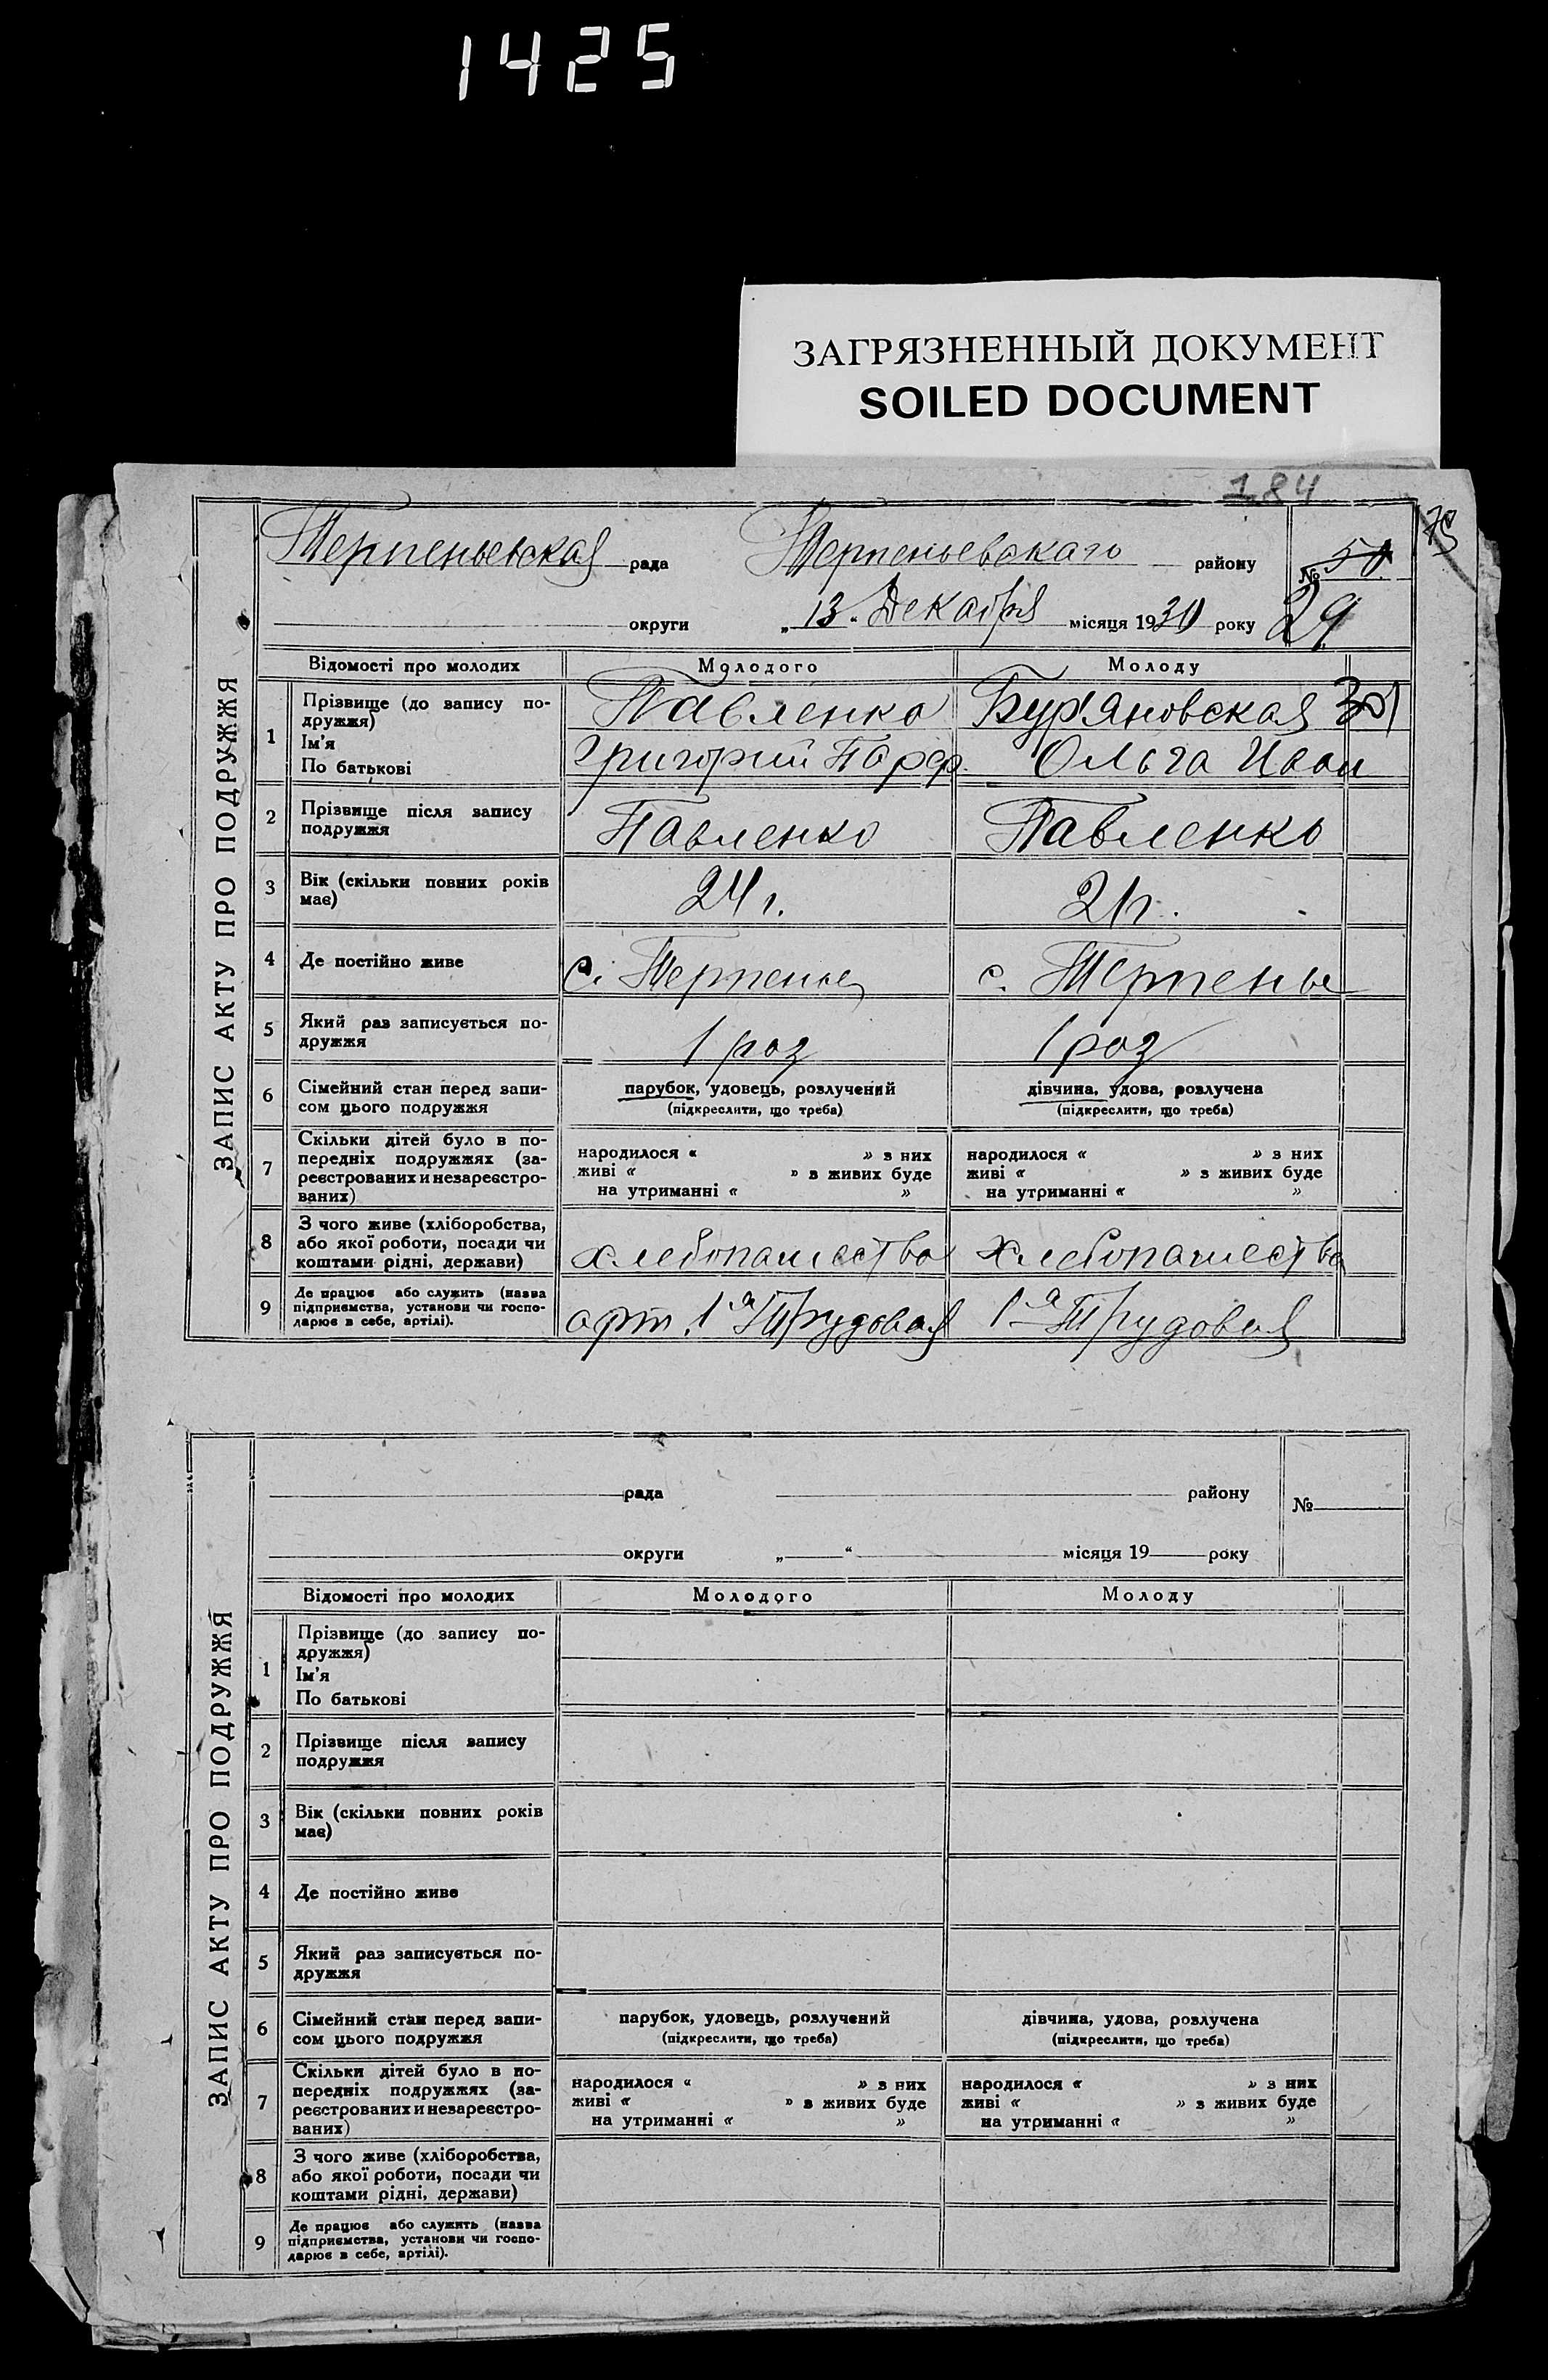 1425
ЗАГРЯЗНЕННЫЙ ДОКУМЕНТ
SOILED DOCUMENT
184
ЗАПИС АКТУ ПРО ПОДРУЖЖЯ
Терпеньевская рада Терпеньевского району № 50
округи „13“ Декабря місяця 1930 року 29
Відомості про молодих Молодого Молоду
1 Прізвище (до запису по-
дружжя) Павленко Бур'яновская
Ім'я
По батькові Григорий Парф. Ольга Иван
2 Прізвище після запису
подружжя Павленко Павленко
3 Вік (скільки повних років
має) 24 г. 21 г.
4 Де постійно живе с. Терпенье с. Терпенье
5 Який раз записується по-
дружжя 1 роз 1 роз
6 Сімейний стан перед запи-
сом цього подружжя парубок, удовець, розлучений дівчина, удова, розлучена
(підкреслити, що треба) (підкреслити, що треба)
7 Скільки дітей було в по-
передніх подружжях (за-
реєстрованих и незареєстро-
ваних)
народилося « » з них народилося « » з них
живі « » з живих буде живі « » з живих буде
на утриманні « » на утриманні « »
8 З чого живе (хліборобства,
або якої роботи, посади чи
коштами рідні, держави) хлебопашество хлебопашество
9 Де працює або служить (назва
підприємства, установи чи госпо-
дарює в себе, артілі). арт. 1а Трудовая 1а Трудовая
ЗАПИС АКТУ ПРО ПОДРУЖЖЯ
рада району №
округи „ “ місяця 19 року
Відомості про молодих Молодого Молоду
1 Прізвище (до запису по-
дружжя)
Ім'я
По батькові
2 Прізвище після запису
подружжя
3 Вік (скільки повних років
має)
4 Де постійно живе
5 Який раз записується по-
дружжя
6 Сімейний стан перед запи-
сом цього подружжя парубок, удовець, розлучений дівчина, удова, розлучена
(підкреслити, що треба) (підкреслити, що треба)
7 Скільки дітей було в по-
передніх подружжях (за-
реєстрованих и незареєстро-
ваних)
народилося « » з них народилося « » з них
живі « » з живих буде живі « » з живих буде
на утриманні « » на утриманні « »
8 З чого живе (хліборобства,
або якої роботи, посади чи
коштами рідні, держави)
9 Де працює або служить (назва
підприємства, установи чи госпо-
дарює в себе, артілі).